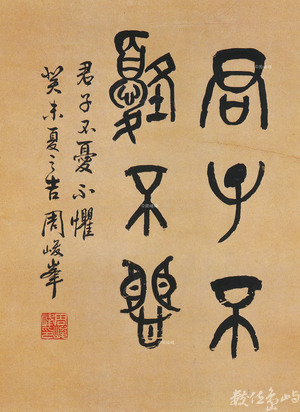 君子不
憂不懼
君子不憂不懼
癸未夏之吉周峻峯